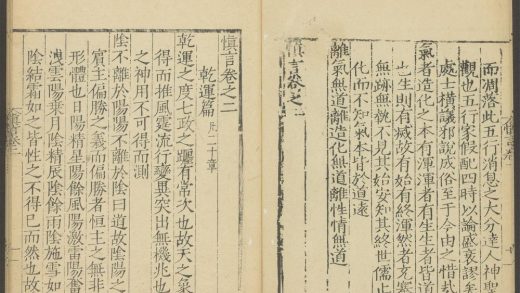 而凋落此五行消息之大分達人神聖
觀也五行家假配四時以論盛衰謬矣
處士橫議邪說成俗至于今由之惜哉
氣者造化之本有渾渾者有生生者皆道
也生則有滅故有始有終渾然者充塞
無跡無執不見其始安知其終世儒止
化而不知氣本皆於道遠
離氣無道離造化無道離性情無道
慎言卷之一
慎言卷之二
乾運篇 凡二十章
乾運之度七政之躔有常次也故天之象
得而推風霆流行變異突出無機兆也
之神用不可得而測
陰不離於陽陽不離於陰曰道故陰陽之
賓主偏勝之義而偏勝者恒主之無非
形體也日陽精星陽餘風陽激雷陽奮
洩雲陽乘月陰精辰陰餘雨陰施雪如
陰結雲如之皆性之不得已而然也故